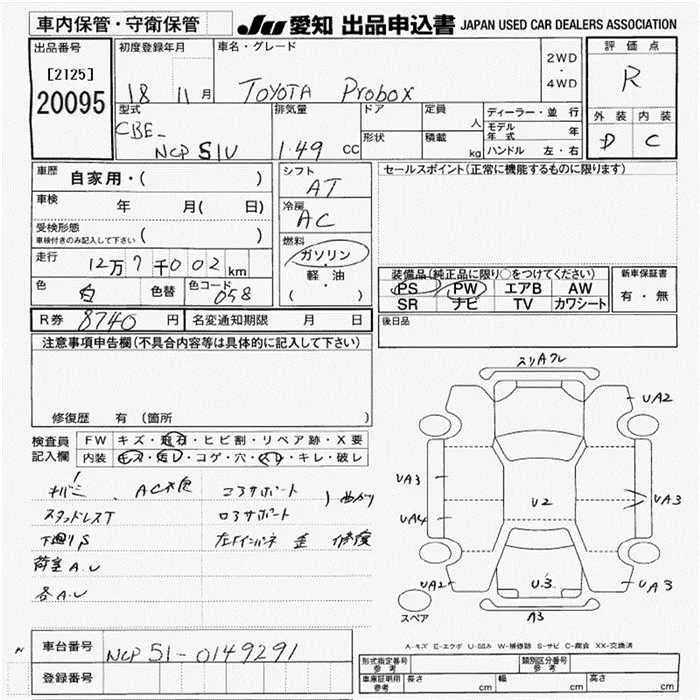 車内保管・守衛保管 JU 愛知 出品申込書 JAPAN USED CAR DEALERS ASSOCIATION
出品番号 初度登録年月 車名・グレード 2WD ・ 4WD 評価点
[2125] 18 11月 TOYOTA Probox R
20095 型式 排気量 ドア 定員 人 ディーラー・並行 外装 内装
CBE- モデル年式 年 D C
NCP 51V 1.49 cc 形状 積載 kg ハンドル 左・右
車歴 自家用・( ) シフト AT セールスポイント(正常に機能するものに限ります)
車検 年 月( 日) 冷房 AC
受検形態 車検付きのみ記入して下さい ( )
燃料 ガソリン ・ 軽油 ( )
走行 12万7千002km 装備品(純正品に限り○をつけてください) 新車保証書
色 白 色替 色コード 058 PS PW エアB AW 有・無
SR ナビ TV カワシート
R券 8740円 名変通知期限 月 日 後日品
注意事項申告欄(不具合内容等は具体的に記入して下さい)
修復歴 有 (箇所 )
検査員記入欄 FW キズ・飛石・ヒビ割・リペア跡・X要
内装 キズ・汚レ・コゲ・穴・スリ・キレ・破レ
AC不良 コアサポート 曲がり
スタッドレスT ロアサポート
下廻りS 左Fインパネ 歪 修復
荷室A.U
各A.U
スリA7レ
UA2
UA3 U2 UA3
UA4
UA2 U.3 UA3
スペア A3
A-キズ E-エクボ U-凹み W-補修跡 S-サビ C-腐食 XX-交換済
車台番号 NCP 51-0149291
登録番号
形式指定番号 参考 類別区分番号 参考
車庫証明用 参考 長さ cm 幅 cm 高さ cm